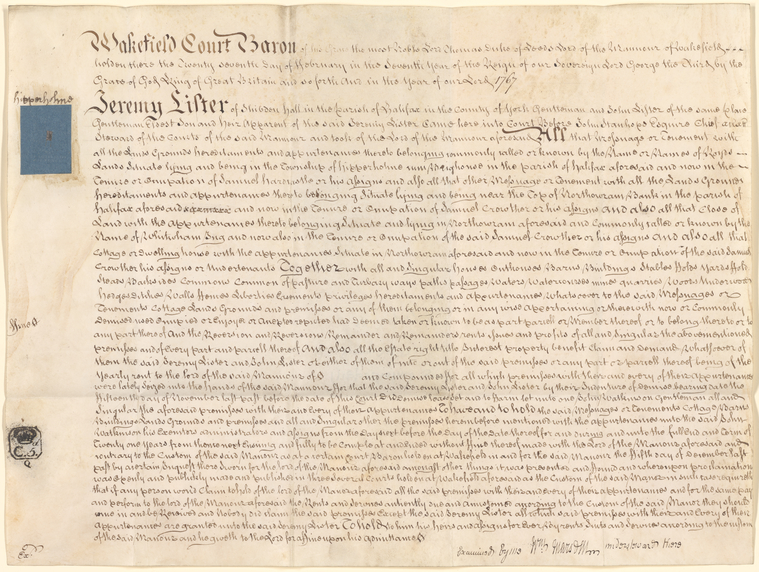 Wakefield Court Baron of his Grace the most Noble Lord Thomas Duke of Leeds Lord of the Mannour of Wakefield
holden there the Twenty seventh Day of February in the Seventh Year of the Reign of our Sovereign Lord George the third by the
Grace of God King of Great Britain and so forth And in the Year of our Lord 1767
Hipperholme
Jeremy Lister of Shibden Hall in the parish of Halifax in the County of York Gentleman and John Lister of the same place
Gentleman Eldest Son and Heir Apparent of the said Jeremy Lister Came here into Court Before John Stanhope Esquire Chief
Steward of the Courts of the said Mannour and took of the Lord of the Mannour aforesaid All that Messuage or Tenement with
all the Lands Grounds hereditaments and appurtenances thereto belonging commonly called or known by the Name or Names of
Lands Situate lying and being in the Township of Hipperholme cum Brighouse in the parish of Halifax aforesaid and now in the
Tenure or Occupation of Samuel or his assigns and also all that other Messuage or Tenement with all the Lands Grounds
hereditaments and appurtenances thereto belonging Situate lying and being near the Top of Northowram Bank in the parish of
Halifax aforesaid and now in the Tenure or Occupation of Samuel Crowther or his assigns And also all that Close of
Land with the appurtenances thereto belonging Situate and lying in Northowram aforesaid and Commonly called or known by the
Name of Ing and now also in the Tenure or Occupation of the said Samuel Crowther or his assigns And also all that
Cottage or Dwelling house with the appurtenances Situate in Northowram aforesaid and now in the Tenure or Occupation of the said Samuel
Crowther his assigns or Undertenants Together with all and Singular houses Outhouses Barns Buildings Stables Folds Yards
Commons Common of pasture and Turbary ways paths passages Waters Watercourses mines quarries Woods Underwoods
hedges Ditches Walls Fences Liberties Easments privileges hereditaments and appurtenances whatsoever to the said Messuages or
Tenements Cottage Lands Grounds and premises or any of them belonging or in any wise appertaining or therewith now or Commonly
Demised used Occupied or Enjoyed or Accepted reputed had Deemed taken or known to be as part parcell or Member thereof or to belong thereto or to
any part thereof And the Reversion and Reversions Remainder and Remainders rents issues and profits of all and Singular the abovementioned
premises and of every part and parcell thereof And also all the Estate right title Interest property benefit Claim and Demand whatsoever of
them the said Jeremy Lister and John Lister or either of them of into or out of the said premises or any part or parcell thereof being of the
Yearly rent to the lord of the said Mannour of and Compounded for all which premises with their and every of their appurtenances
were lately seized into the hands of the said Mannour for that the said Jeremy Lister and John Lister by their Indenture of Demise bearing date the
fifteenth day of November last past before the date of this Court did Demise lease set and to Farm let unto one John Watkinson Gentleman all and
Singular the aforesaid premises with their and every of their appurtenances To have and to hold the said Messuages or Tenements Cottage Barns
Buildings Lands Grounds and premises and all and Singular other the premises hereinbefore mentioned with the appurtenances unto the said John
Watkinson his Executors administrators and assigns from the day next before the Day of the Date thereof for and during and unto the full End and Term of
Twenty one Years from thence next Ensuing and fully to be Compleat and Ended without fine thereof made with the Lord of the Mannour aforesaid and
contrary to the Custom of the said Mannour as at a certain Court Baron holden at Wakefield in and for the said Mannour the fifth day of December last
past by a certain Inquest there Sworn for the lord of the Mannour aforesaid amongst other things it was presented and found and whereupon proclamation
was openly and publickly made and published in three Several Courts holden at Wakefield aforesaid as the Custom of the said Mannour in such case requireth
that if any person wou'd Claim to hold of the lord of the Mannor aforesaid all the said premises with their and every of their appurtenances and for the same pay
and perform to the lord of the Mannour aforesaid the Rents and Services anciently due and accustomed according to the Custom of the said Mannour they should
come in and be Received and Nobody did claim the said premises Except the said Jeremy Lister all which said premises with their and Every of their
appurtenances are granted unto the said Jeremy Lister To hold to him his heirs and assigns for Ever by rents Suits and Services according to the custom
of the said Mannour and he giveth to the Lord for a fine upon his admittance
Examined by me Understeward there